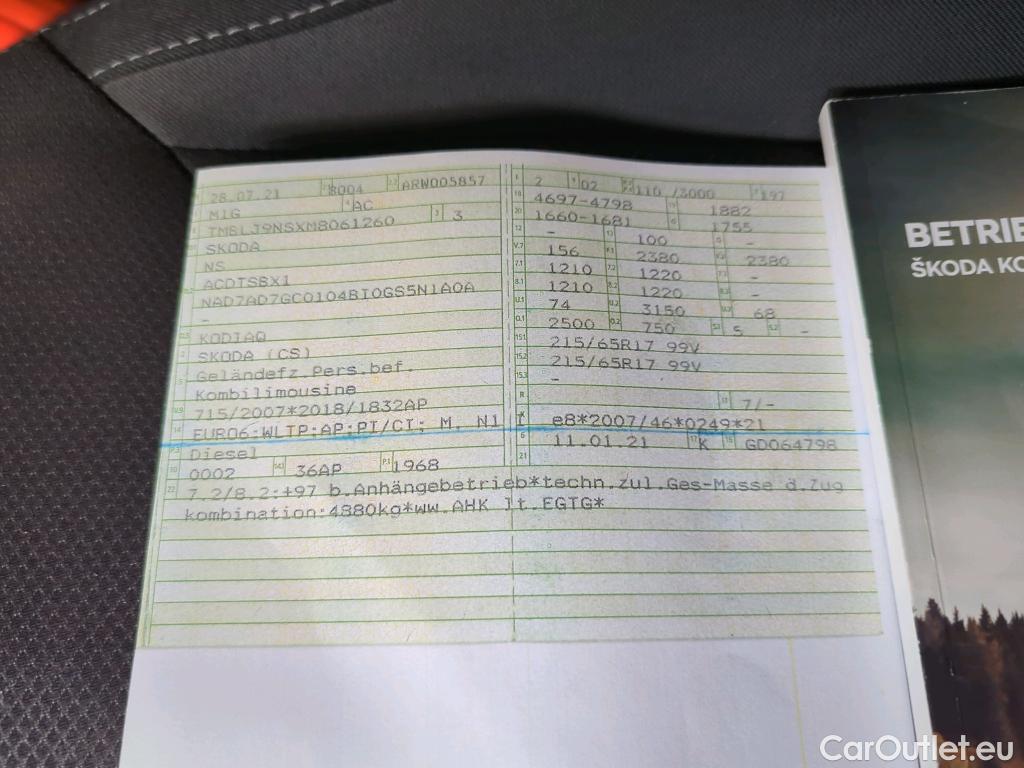 28.07.21 8004 ARW005857
M1G AC
TMBLJ9NSXM8061260 3
SKODA
NS
ACDTSBX1
NAD7AD7GC0104BI0GS5N1A0A
-
KODIAQ
SKODA (CS)
Geländefz.Pers.bef.
Kombilimousine
715/2007*2018/1832AP
EURO6;WLTP;AP;PI/CI; M, N1 I
Diesel
0002 36AP 1968
2 02 110 /3000 197
4697-4798 1882
1660-1681 1755
- 100 -
156 2380 2380
1210 1220 -
1210 1220 -
74 3150 68
2500 750 5 -
215/65R17 99V
215/65R17 99V
-
7/-
e8*2007/46*0249*21
11.01.21 K GD064798
7.2/8.2:+97 b.Anhängebetrieb*techn.zul.Ges-Masse d.Zug
kombination:4880kg*ww.AHK lt.EGTG*
BETRIE
ŠKODA KO
CarOutlet.eu